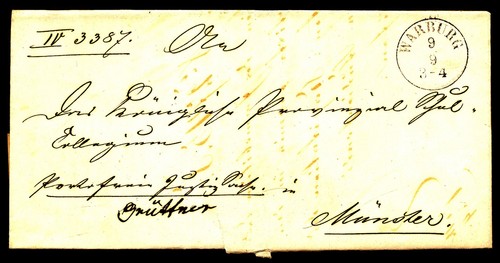 IV 3387. An
WARBURG
9
9
3-4
Das Königliche Provinzial Schul-
Collegium
Portofreie Justiz Sache. in
Grüttner
Münster.